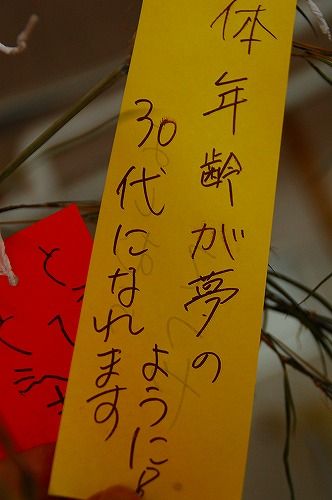 体年齢が夢の
30代になれます
ように♪